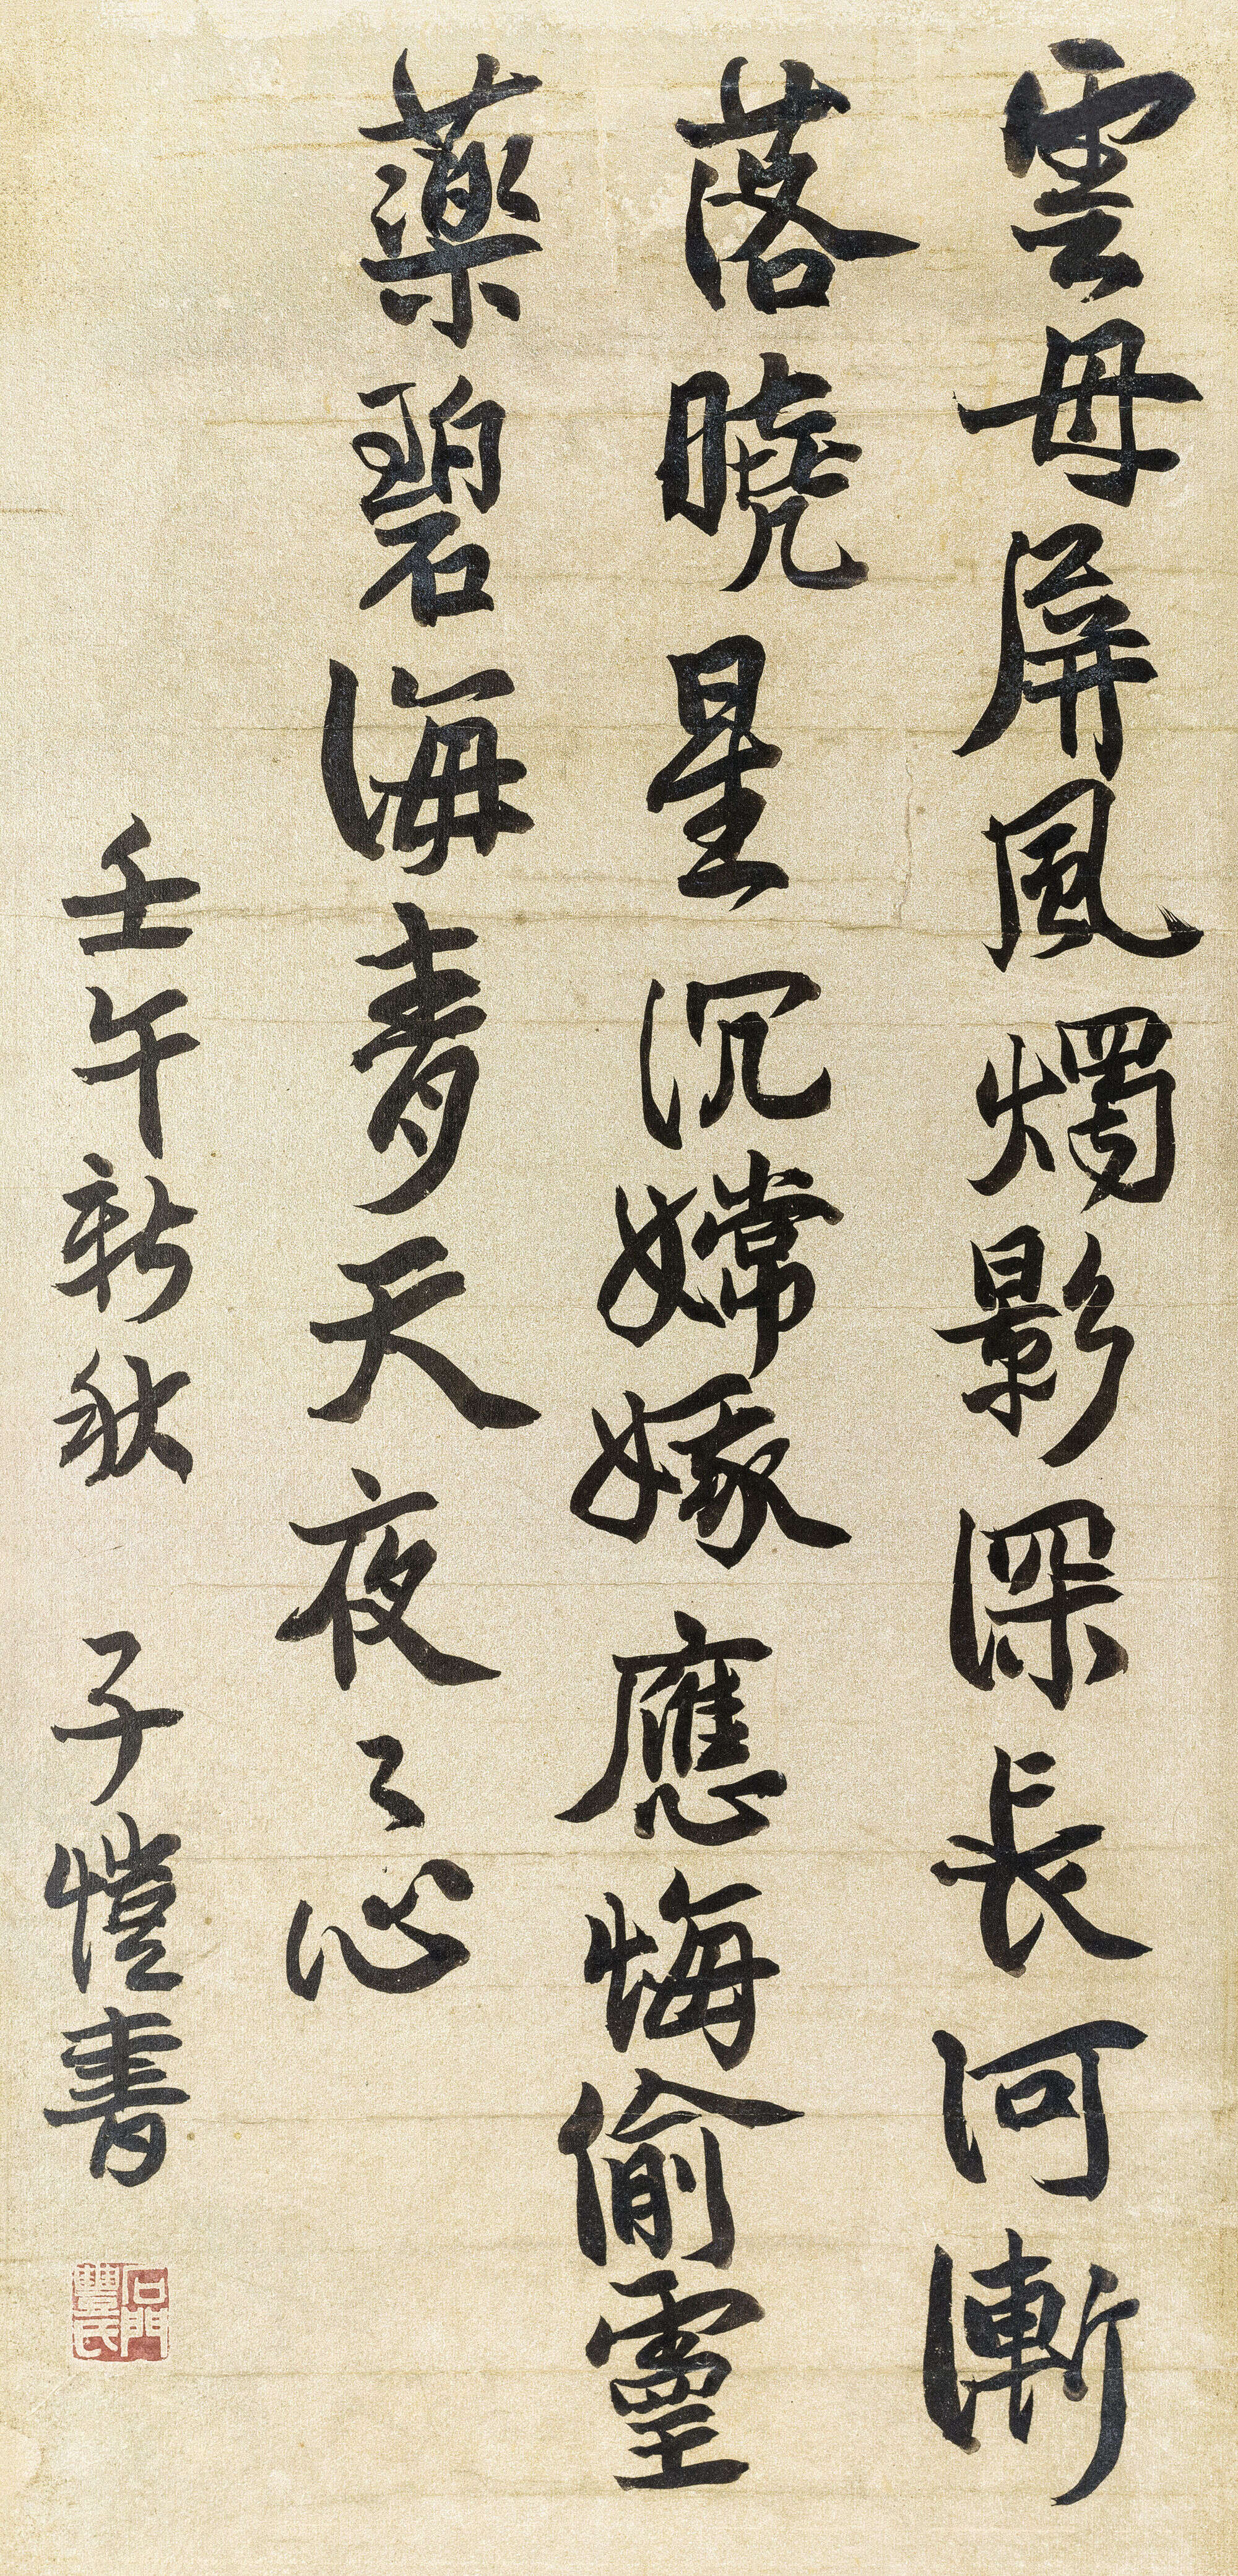 雲母屏風燭影深長河漸
落曉星沉嫦娥應悔偷靈
藥碧海青天夜々心
壬午新秋 子愷書
石門豐氏